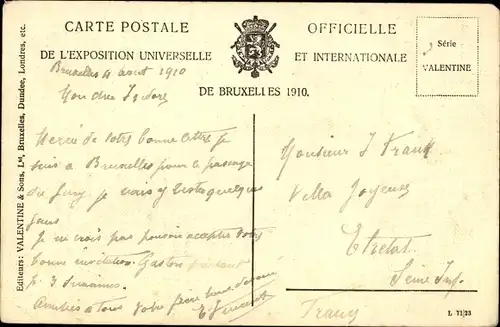 CARTE POSTALE OFFICIELLE
DE L'EXPOSITION UNIVERSELLE ET INTERNATIONALE
DE BRUXELLES 1910.
Série
VALENTINE
Editeurs: VALENTINE & Sons, Ld, Bruxelles, Dundee, Londres, etc.
Bruxelles 4 août 1910
Mon cher Isidore
Merci de votre bonne lettre je
suis à Bruxelles pour le passage
du Jury je vais y rester quelques
jours
Je ne crois pas pouvoir accepter votre
bonne invitation. Gaston
p. 3 semaines.
Amitiés à tous Votre frère
E. Vincent
Monsieur I Frank
Villa Joyeuse
Etretat
Seine Inf.
L 7123